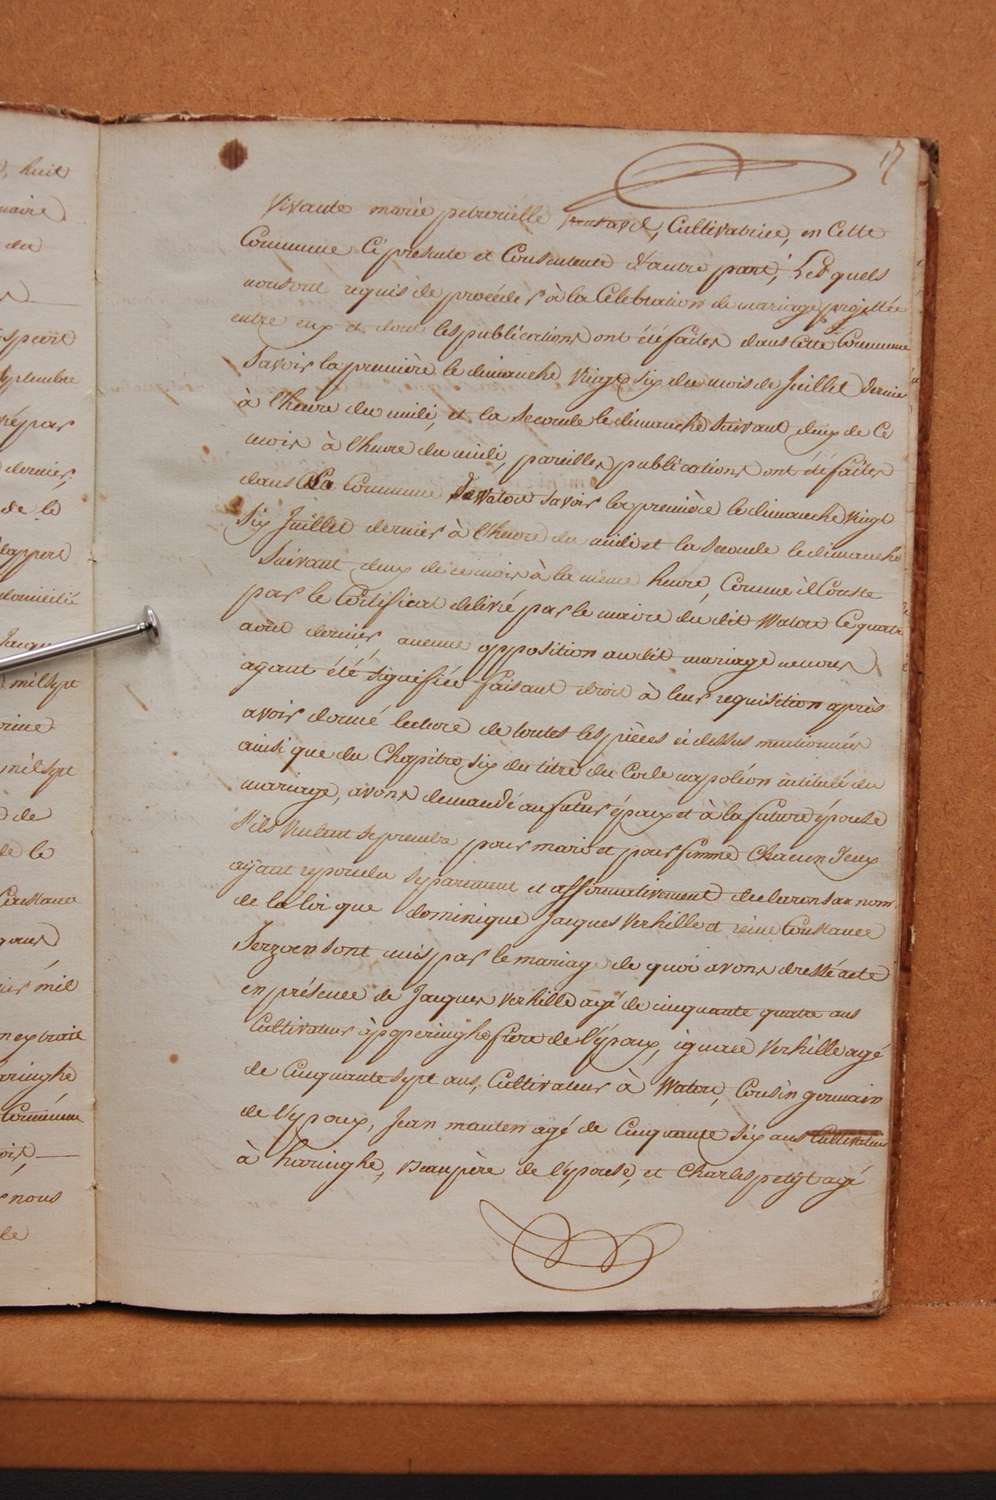 17
, huit
naire
du
ptembre
vé par
dernier,
de le
domicilié
Jacque
mil sept
mil sept
de
de le
Constance
mil
n extroit
aringhe
nous
le
Vivante marie petronille , Cultivatrice, en Cette
Commune Ci présente et Consentente d'autre part, Lesquels
nous ont requis de procéder à la Célébration de mariage projettée
entre eux et dont les publications ont été faites dans Cette Commune
Savoir la première le dimanche Vingt Six du mois de Juillet dernier
à l'heure du midi, et la Seconde le dimanche Suivant deux de Ce
mois à l'heure du midi, pareilles publications ont été faites
dans La Commune de Watou Savoir la première le dimanche Vingt
Six Juillet dernier à l'heure du midi et la Seconde le dimanche
Suivant deux de ce mois à la même heure, Comme il Conste
par le Certificat délivré par le maire du dit Watou le quatre
août dernier, aucune opposition au dit mariage ne nous
ayant été signifiée faisant droit à leur requisition après
avoir donné lecture de toutes les pièces ci dessus mentionnées
ainsi que du Chapitre Six du titre du Code napoléon intitulé du
mariage, avons demandé au futur époux et à la future épouse
s'ils veulent se prendre pour mari et pour femme Chacun d'eux
ayant repondu séparement et affirmativement declarons au nom
de la loi que dominique Jacques Verhille et reine Constance
Terzoen sont unis par le mariage de quoi avons dressé acte
en présence de Jacques Verhille agé de cinquante quatre ans
Cultivateur à poperinghe frere de l'époux, ignace Verhille agé
de Cinquante Sept ans, Cultivateur à Watou, Cousin germain
de l'époux, Jean mauten agé de Cinquante Six ans Cultivateur
à haringhe, Beaupère de l'épouse, et Charles petyt agé